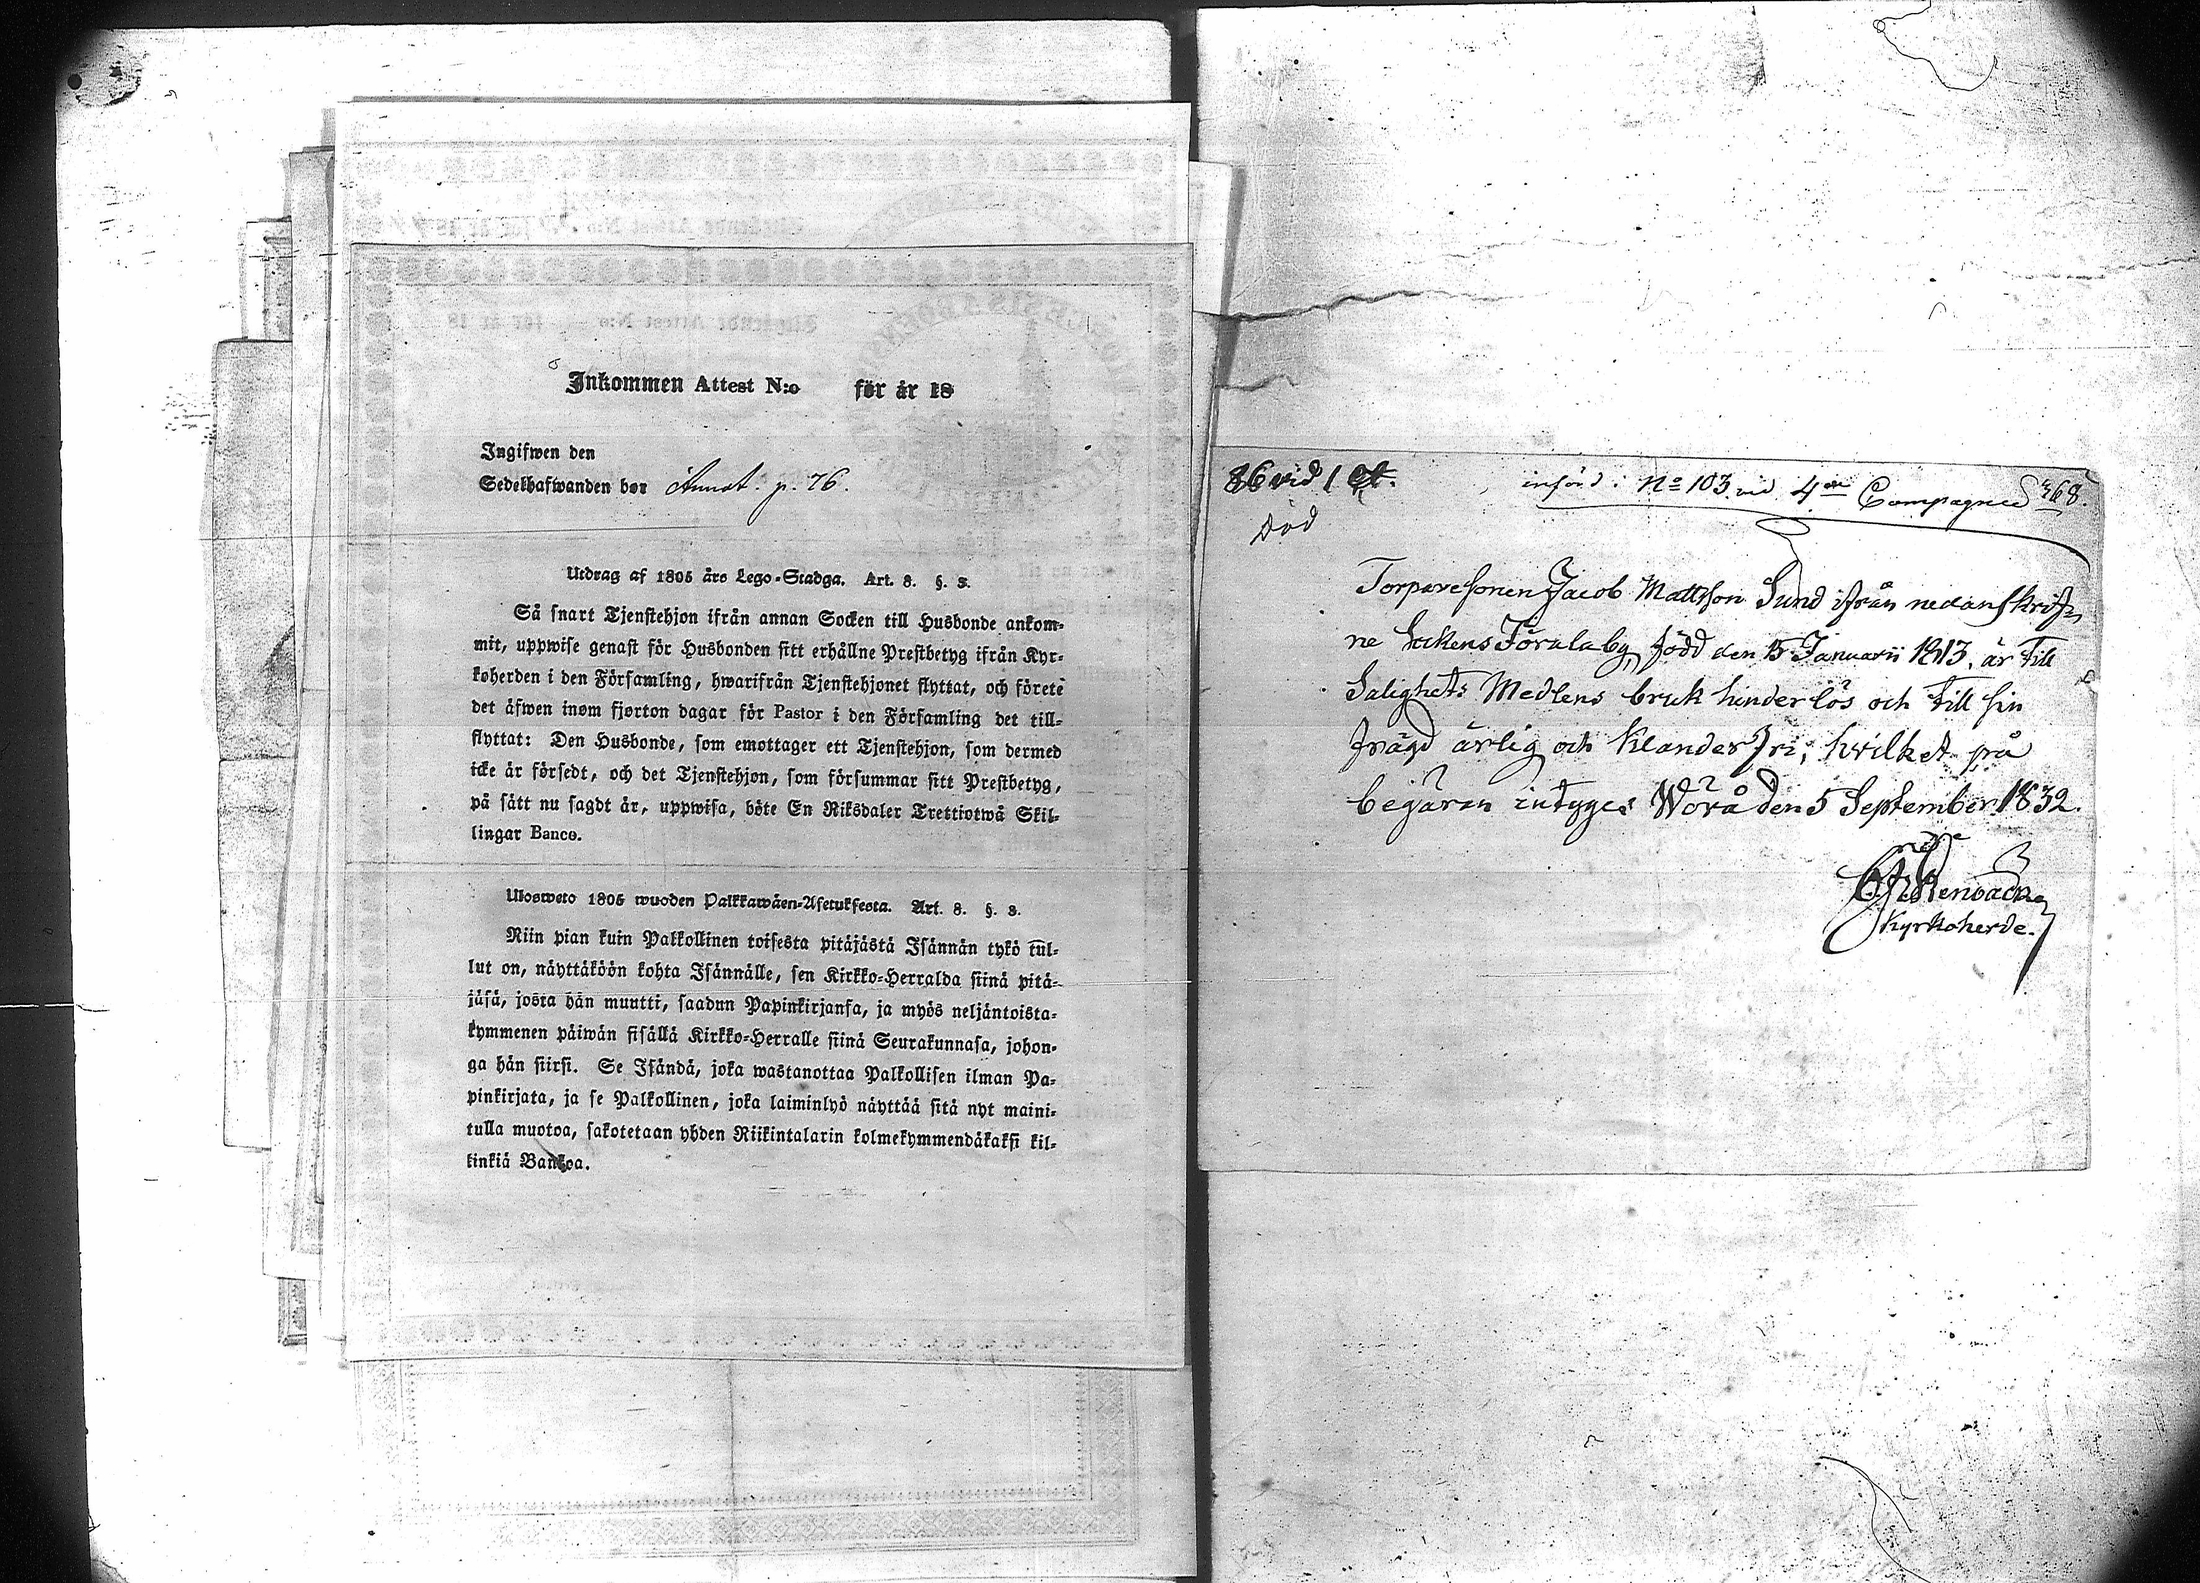 Inkommen Attest N:o för år 18
Ingifwen den
Sedelhafwanden bor Annot. p. 76.
Utdrag af 1805 års Lego-Stadga. Art. 8. §. 3.
Så snart Tjenstehjon ifrån annan Socken till Husbonde ankom-
mit, uppwise genast för Husbonden sitt erhållne Prestbetyg ifrån Kyr-
koherden i den Församling, hwarifrån Tjenstehjonet flyttat, och förete
det äfwen inom fjorton dagar för Pastor i den Församling det till-
flyttat: Den Husbonde, som emottager ett Tjenstehjon, som dermed
icke är försedt, och det Tjenstehjon, som försummar sitt Prestbetyg,
på sätt nu sagdt är, uppwisa, böte En Riksdaler Trettiotwå Skil-
lingar Banco.
Ulosweto 1805 wuoden Palkkawäen-Asetuksesta. Art. 8. §. 3.
Niin pian kuin Palkollinen toisesta pitäjästä Isännän tykö tul-
lut on, näyttäköön kohta Isännälle, sen Kirkko-Herralda siinä pitä-
jäsä, josta hän muutti, saadun Papinkirjansa, ja myös neljäntoista-
kymmenen päiwän sisällä Kirkko-Herralle siinä Seurakunnasa, johon-
ga hän siirsi. Se Isändä, joka wastanottaa Palkollisen ilman Pa-
pinkirjata, ja se Palkollinen, joka laiminlyö näyttää sitä nyt maini-
tulla muotoa, sakotetaan yhden Riikintalarin kolmekymmendäkaksi kil-
linkiä Bankoa.
86 vid 1
införd i No 103 vid 4de Compagnie 68.
Död
Torparesonen Jacob Mattsson Sund ifrån nedanskrif-
ne Sockens Förala by, född den 15 Januarii 1813, är till
Salighets Medlens bruk hinderlös och till sin
frägd ärlig och klanderfri; hvilket på
begäran intyges Wörå den 5 September 1832.
Kyrkoherde.